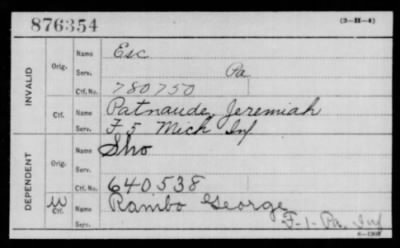 876354 (3-H-4)
INVALID
Orig. Name Esc
Serv. Pa
Ctf. No. 780750
Ctf. Name Patnaude, Jeremiah
Serv. F 5 Mich Inf
DEPENDENT
Orig. Name Sho
Serv.
Ctf. No. 640,538
W Ctf. Name Rambo George
Serv. F-1-Pa. Inf